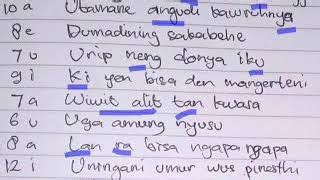 10 a Utamane angudi kawruhnya
8 e Dumadining sakabehe
7 u Urip neng donya iku
9 i Ki yen bisa den mangerteni
7 a Wiwit alit tan kwasa
6 u Uga amung nyusu
8 a Lan ira bisa ngapa ngapa
12 i Uningani umur wus pinesthi